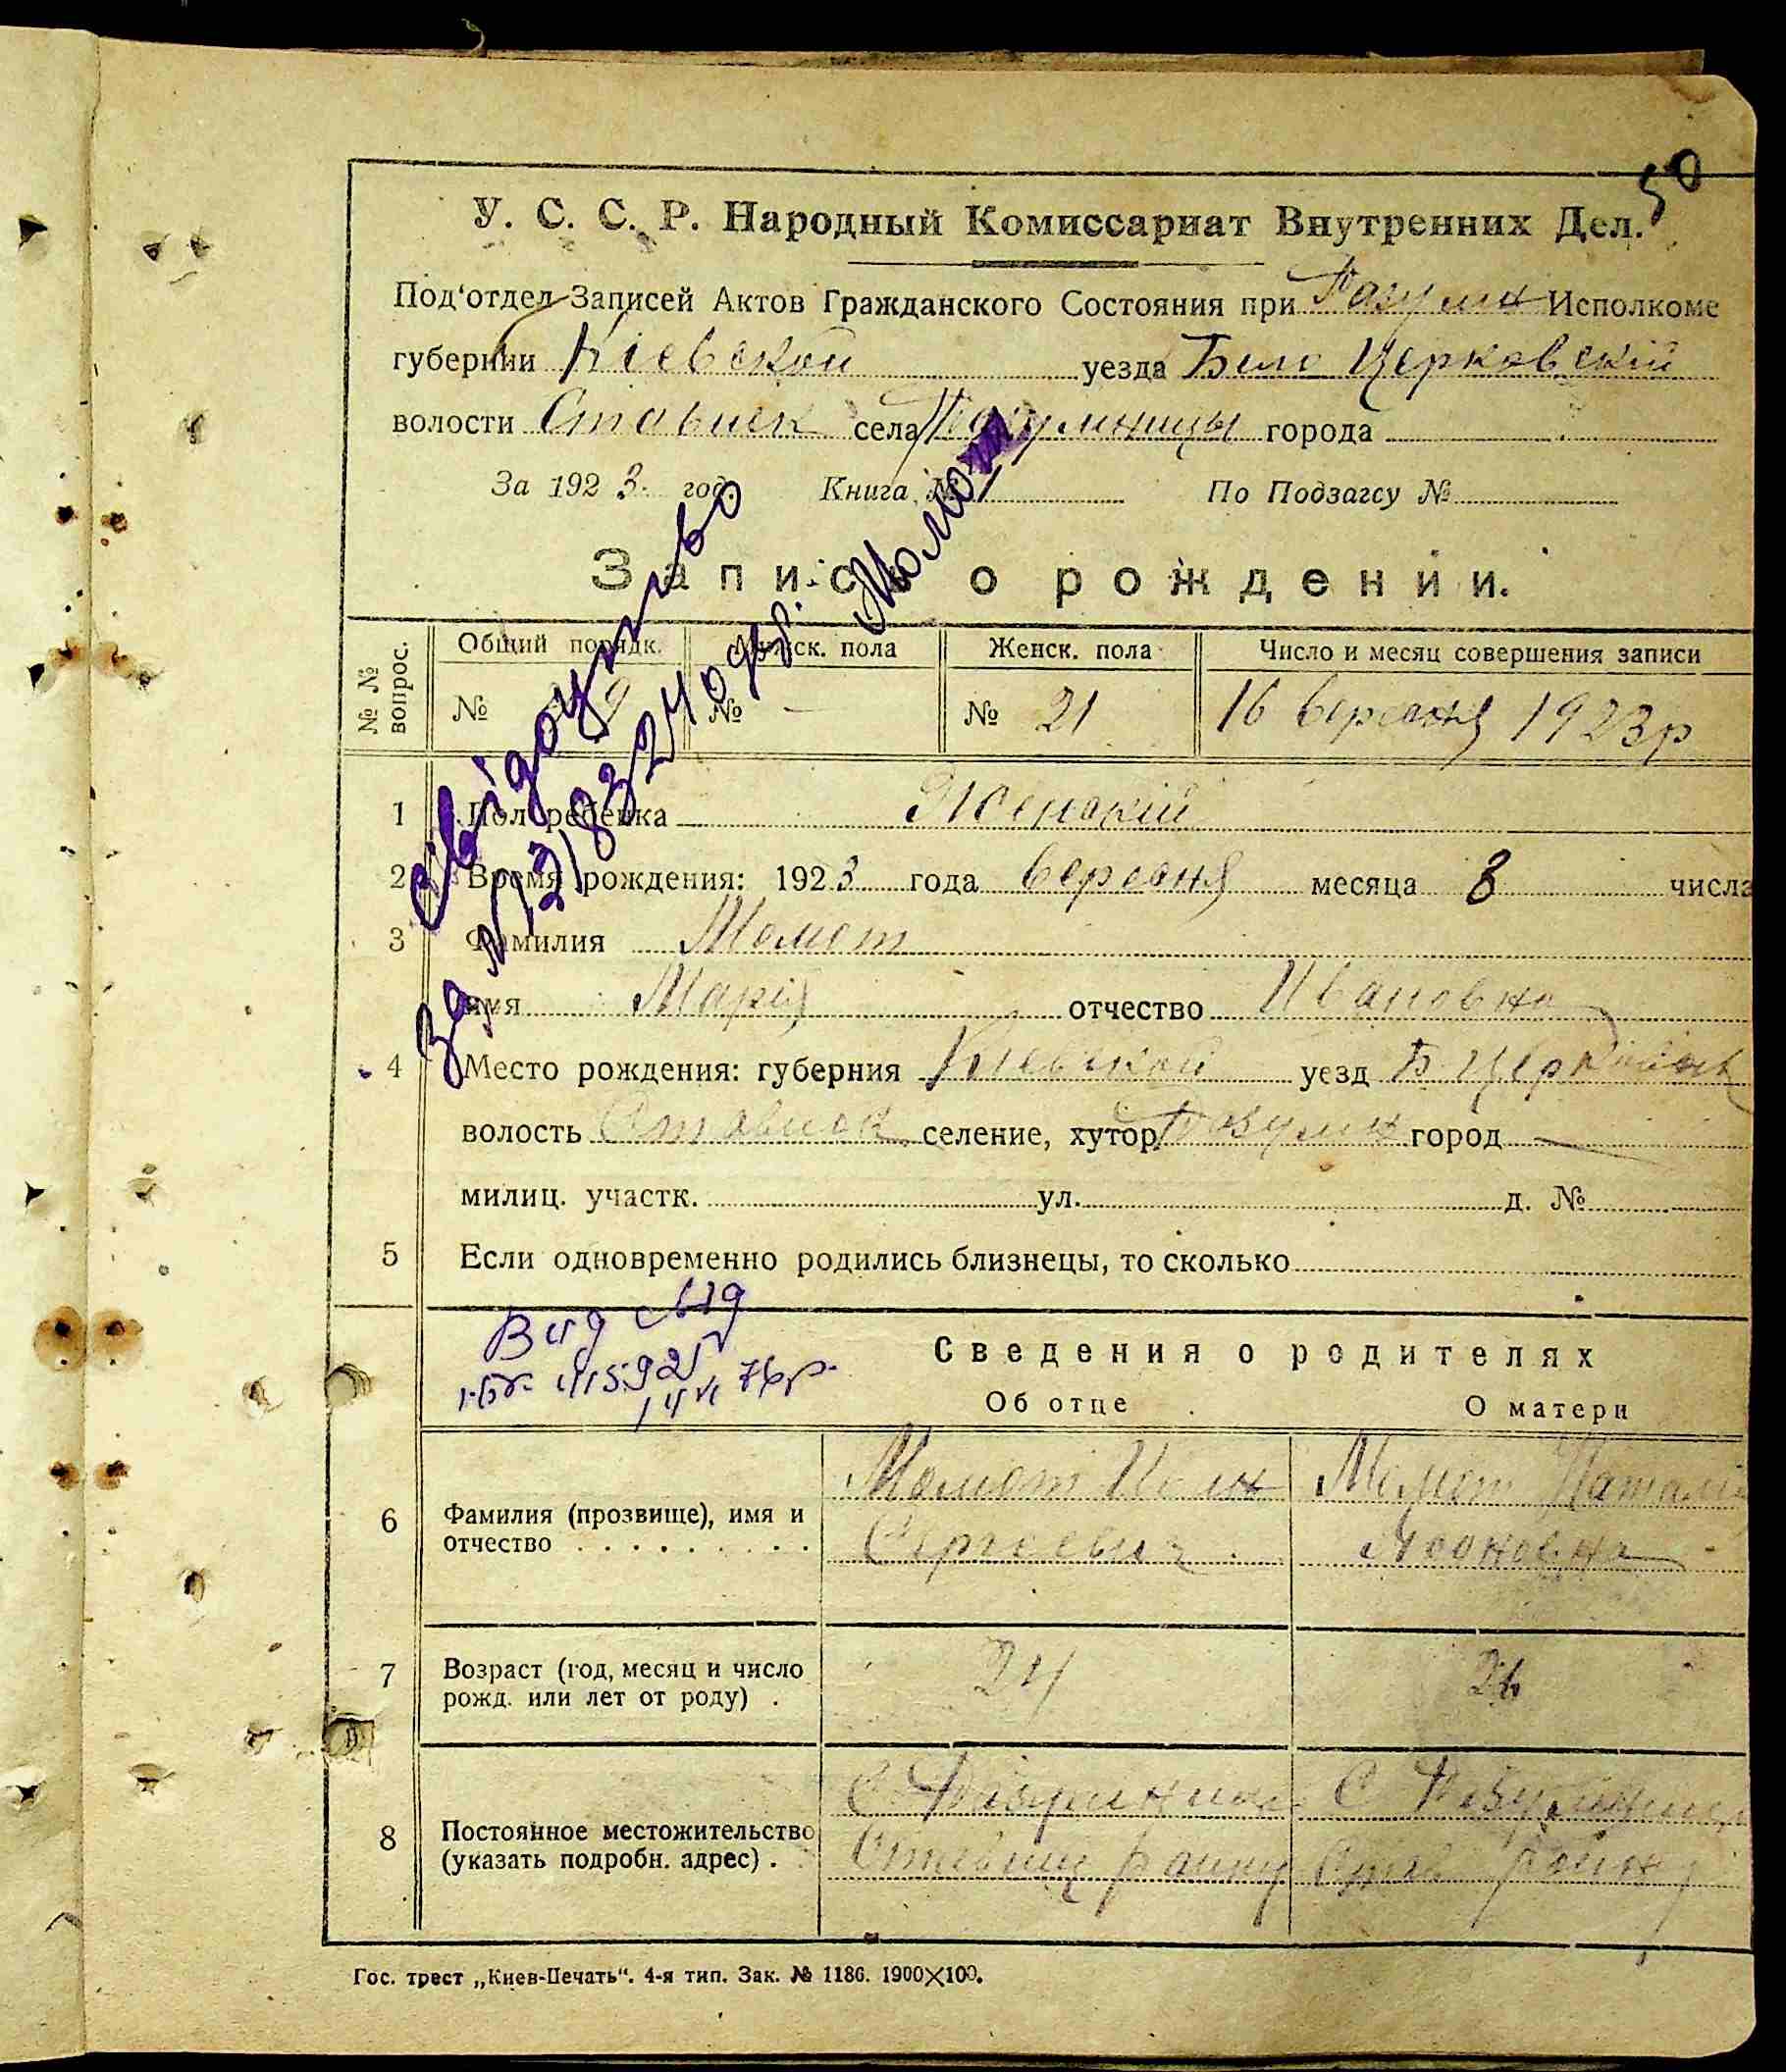 50
У. С. С. Р. Народный Комиссариат Внутренних Дел.
Под'отдел Записей Актов Гражданского Состояния при Розумн Исполкоме
губернии Кіевской уезда Бело Церковскій
волости Ставищ села города
За 1923 год. Книга № По Подзагсу №
Запись о рождении.
№ № вопрос. Общий порядк. Мужск. пола Женск. пола Число и месяц совершения записи
№ № – № 21 16 березня 1923р
Свідоцтво
Момот
1 Пол ребенка Женскій
2 Время рождения: 1923 года березня месяца 8 числа
3 Фамилия Момот
имя Марія отчество Ивановна
4 Место рождения: губерния Киевской уезд Б Церковск
волость Ставищ селение, хутор город —
милиц. участк. ул. д. №
5 Если одновременно родились близнецы, то сколько
Вид свід
76р.
Сведения о родителях
Об отце О матери
6 Фамилия (прозвище), имя и отчество . . . . . . . . . Момот Сергеевич Момот Наталія
7 Возраст (год, месяц и число рожд. или лет от роду) . 24 26
8 Постоянное местожительство (указать подробн. адрес) . С. району С. Став району
Гос. трест „Киев-Печать“. 4-я тип. Зак. № 1186. 1900×100.